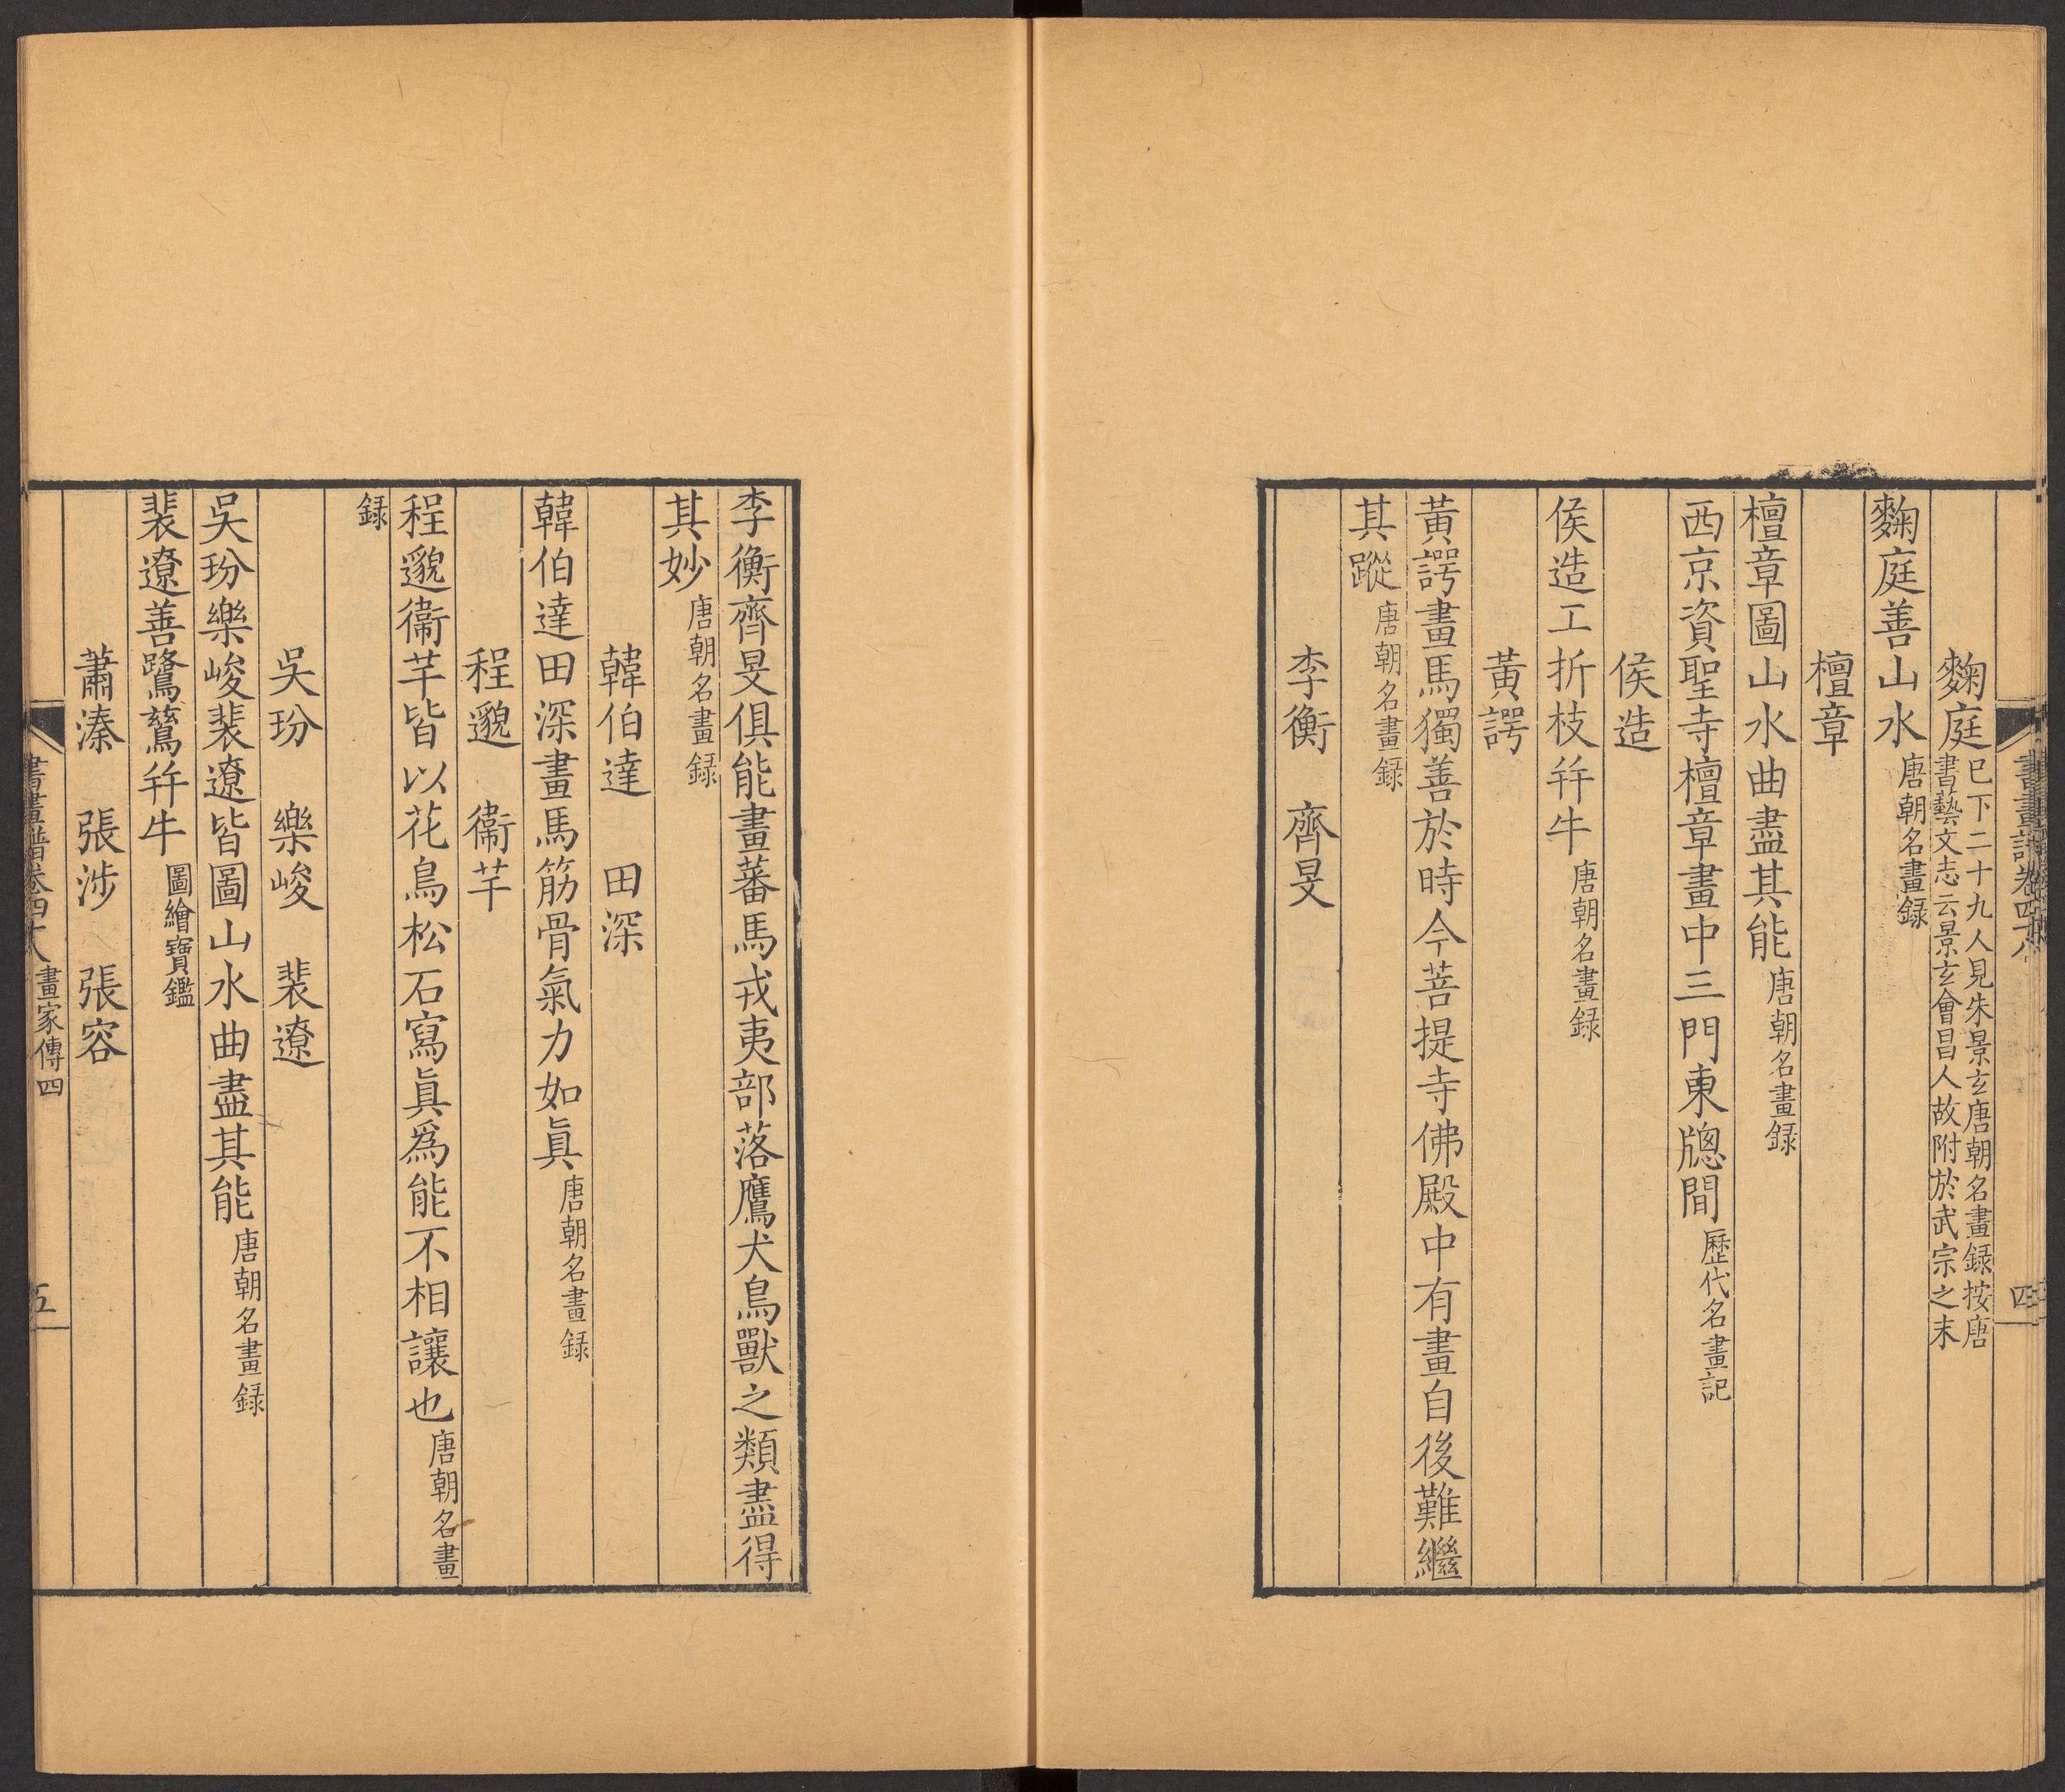 麴庭已下二十九人見朱景玄唐朝名畫録按唐
書藝文志云景玄會昌人故附於武宗之末
麴庭善山水唐朝名畫録
檀章
檀章圖山水曲盡其能唐朝名畫録
西京資聖寺檀章畫中三門東牕間歷代名畫記
侯造
侯造工折枝并牛唐朝名畫録
黃諤
黃諤畫馬獨善於時今菩提寺佛殿中有畫自後難繼
其蹤唐朝名畫録
李衡　齊旻
李衡齊旻俱能畫蕃馬戎夷部落鷹犬鳥獸之類盡得
其妙唐朝名畫録
韓伯達　田深
韓伯達田深畫馬筋骨氣力如眞唐朝名畫録
程邈　衞芊
程邈衞芊皆以花鳥松石寫眞爲能不相讓也唐朝名畫
録
吳玢　樂峻　裴遼
吳玢樂峻裴遼皆圖山水曲盡其能唐朝名畫録
裴遼善鷺鷥并牛圖繪寶鑑
蕭溱　張涉　張容
畫家傳四
五